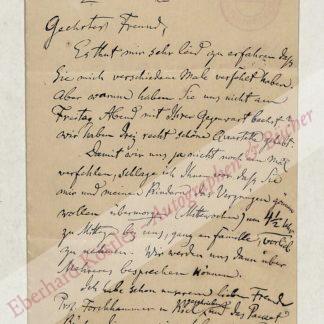 Geehrter Freund,
Es thut mir sehr leid zu erfahren daß
Sie mich verschiedene Male verfehlt haben.
Aber warum haben Sie uns nicht am
Freitag Abend mit Ihrer Gegenwart beehrt?
wir haben drei recht schöne Quartette gehabt.
Damit wir uns ja nicht noch ein Mal
verfehlen, schlage ich Ihnen vor daß Sie
mir und meinen Kindern das Vergnügen gönnen
wollen übermorgen (Mittwochen) um 4½ Uhr
zu Mittag bei uns, ganz en famille, vorlieb
zu nehmen. Wir werden uns dann über
Mehreres besprechen können.
Ich habe schon unserem lieben Freund
Prof. Forchhammer in Kiel geschrieben und das Packet
Eberhard Köstler Autographen & Bücher